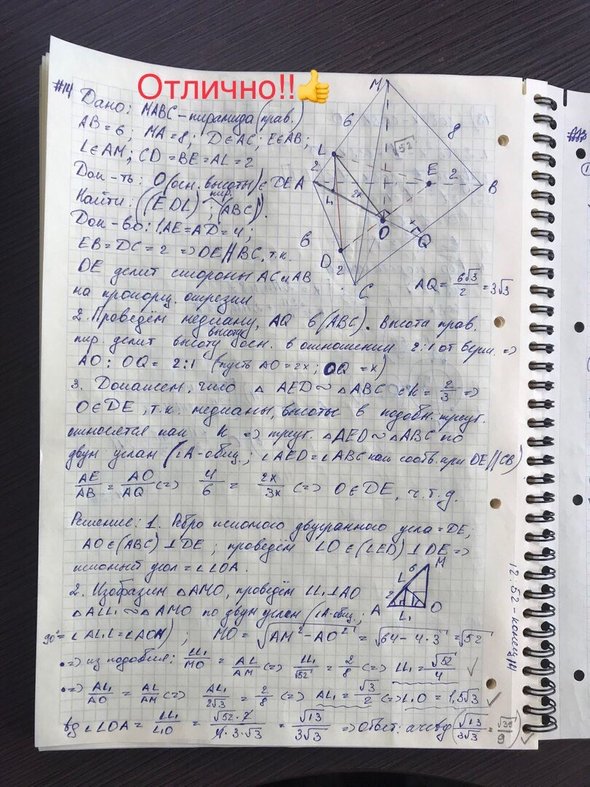 Отлично!!👍
#14
Дано: MABC - пирамида (прав.)
AB = 6; MA = 8; D∈AC; E∈AB;
L∈AM; CD = BE = AL = 2
Док-ть: O (осн. высоты) ∈ DE
Найти: ((EDL); (ABC)).
Док-во: 1. AE = AD = 4;
EB = DC = 2 => DE || BC, т.к.
DE делит стороны AC и AB
на пропорц. отрезки
2. Проведём медиану, AQ в (ABC). Высота прав.
пир. делит высоту осн. в отношении 2:1 от верш. =>
AO : OQ = 2:1 (пусть AO = 2x; OQ = x)
3. Докажем, что △AED ~ △ABC с k = 2/3 =>
O∈DE, т.к. медианы, высоты в подобн. треуг.
относятся как k => треуг. △AED ~ △ABC по
двум углам (∠A - общ.; ∠AED = ∠ABC как соотв. при DE || CB)
AE/AB = AO/AQ <=> 4/6 = 2x/3x <=> O∈DE, ч.т.д.
Решение: 1. Ребро искомого двугранного угла = DE,
AO∈(ABC) ⊥ DE; проведём LO∈(LED) ⊥ DE =>
искомый угол = ∠LOA.
2. Изобразим △AMO, проведём LL₁ ⊥ AO
△ALL₁ ~ △AMO по двум углам (∠A - общ.;
90° = ∠AL₁L = ∠AOM); MO = √AM² - AO² = √64 - 4·3 = √52
• => из подобия: LL₁/MO = AL/AM <=> LL₁/√52 = 2/8 <=> LL₁ = √52/4
• => AL₁/AO = AL/AM <=> AL₁/2√3 = 2/8 <=> AL₁ = √3/2 <=> L₁O = 1,5√3
tg ∠LOA = LL₁/L₁O = √52·2/4·3·√3 = √13/3√3 => Ответ: arctg (√13/3√3 = √39/9)
M
6
8
√52
L
2
A
4
2x
E
2
B
O
x
Q
6
D
2
C
AQ = 6√3/2 = 3√3
M
6
L
2
A
L₁
O
12:52 - конец №14